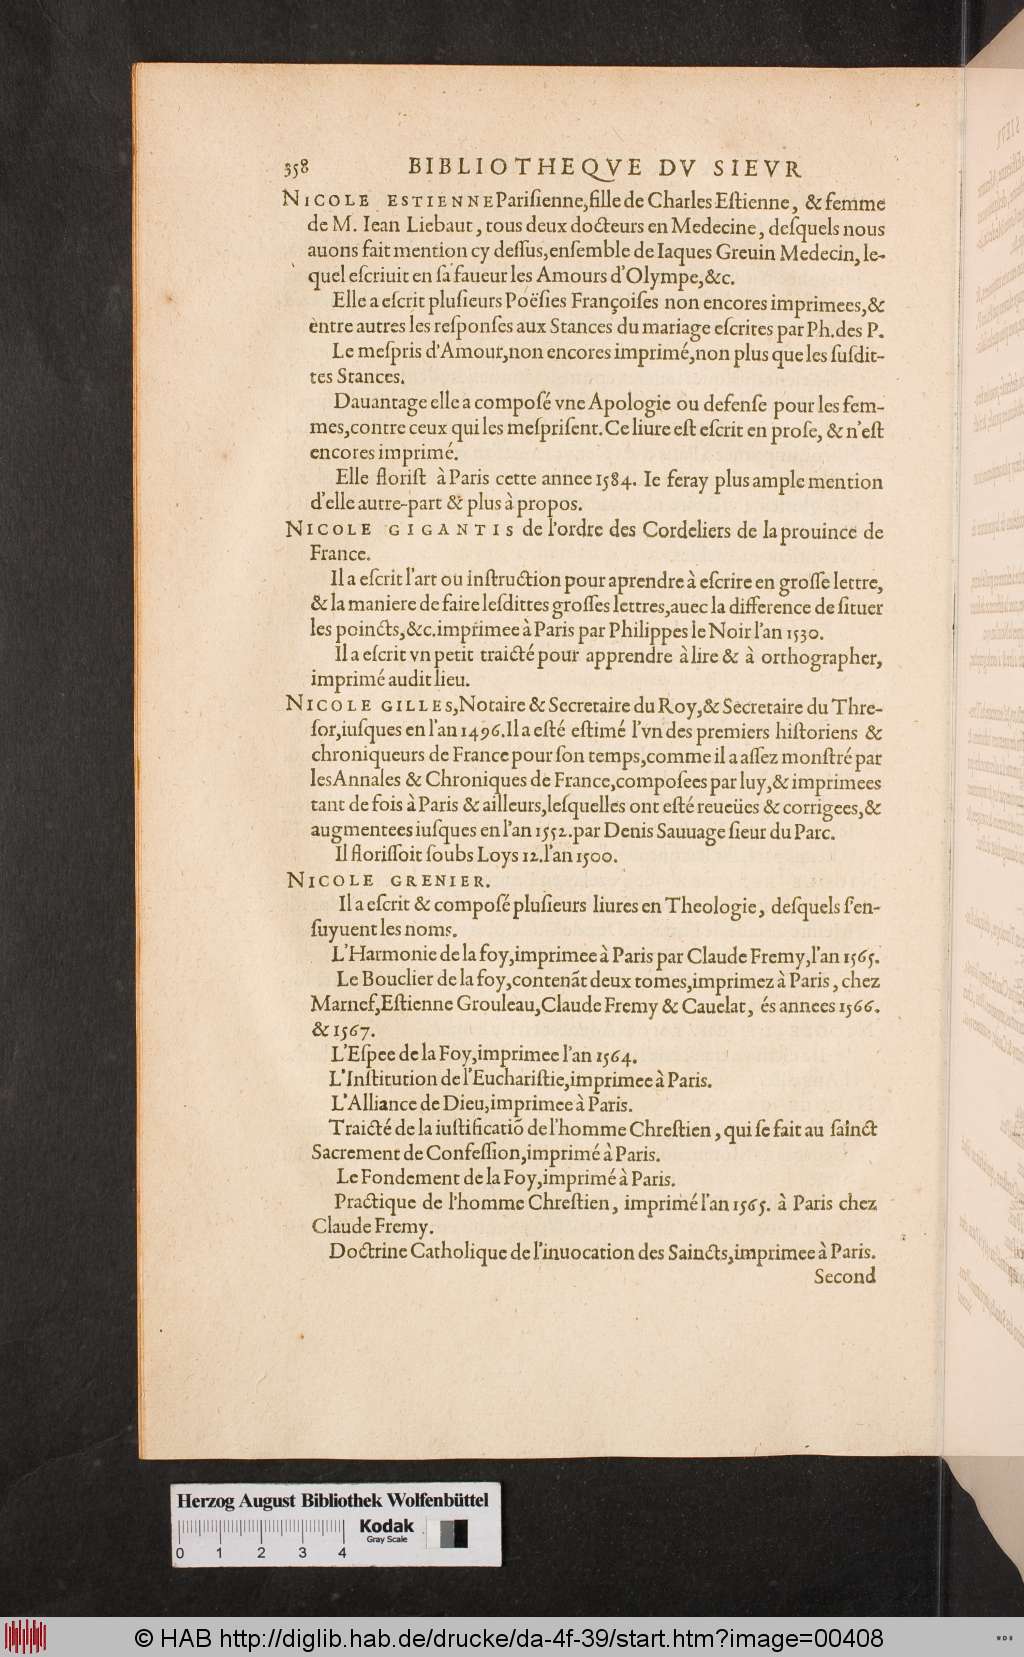 358 BIBLIOTHEQVE DV SIEVR
NICOLE ESTIENNE Pariſienne, fille de Charles Eſtienne, & femme
de M. Iean Liebaut, tous deux docteurs en Medecine, deſquels nous
auons fait mention cy deſſus, enſemble de Iaques Greuin Medecin, le-
quel eſcriuit en ſa faueur les Amours d'Olympe, &c.
Elle a eſcrit pluſieurs Poëſies Françoiſes non encores imprimees, &
entre autres les reſponſes aux Stances du mariage eſcrites par Ph. des P.
Le meſpris d'Amour, non encores imprimé, non plus que les ſuſdit-
tes Stances.
Dauantage elle a compoſé vne Apologie ou defenſe pour les fem-
mes, contre ceux qui les meſpriſent. Ce liure eſt eſcrit en proſe, & n'eſt
encores imprimé.
Elle floriſt à Paris cette annee 1584. Ie feray plus ample mention
d'elle autre-part & plus à propos.
NICOLE GIGANTIS de l'ordre des Cordeliers de la prouince de
France.
Il a eſcrit l'art ou inſtruction pour aprendre à eſcrire en groſſe lettre,
& la maniere de faire leſdittes groſſes lettres, auec la difference de ſituer
les poincts, &c. imprimee à Paris par Philippes le Noir l'an 1530.
Il a eſcrit vn petit traicté pour apprendre à lire & à orthographer,
imprimé audit lieu.
NICOLE GILLES, Notaire & Secretaire du Roy, & Secretaire du Thre-
ſor, iuſques en l'an 1496. Il a eſté eſtimé l'vn des premiers hiſtoriens &
chroniqueurs de France pour ſon temps, comme il a aſſez monſtré par
les Annales & Chroniques de France, compoſees par luy, & imprimees
tant de fois à Paris & ailleurs, leſquelles ont eſté reueües & corrigees, &
augmentees iuſques en l'an 1552. par Denis Sauuage ſieur du Parc.
Il floriſſoit ſoubs Loys 12. l'an 1500.
NICOLE GRENIER.
Il a eſcrit & compoſé pluſieurs liures en Theologie, deſquels ſ'en-
ſuyuent les noms.
L'Harmonie de la foy, imprimee à Paris par Claude Fremy, l'an 1565.
Le Bouclier de la foy, contenãt deux tomes, imprimez à Paris, chez
Marnef, Eſtienne Grouleau, Claude Fremy & Cauelat, és annees 1566.
& 1567.
L'Eſpee de la Foy, imprimee l'an 1564.
L'Inſtitution de l'Euchariſtie, imprimee à Paris.
L'Alliance de Dieu, imprimee à Paris.
Traicté de la iuſtificatiõ de l'homme Chreſtien, qui ſe fait au ſainct
Sacrement de Confeſſion, imprimé à Paris.
Le Fondement de la Foy, imprimé à Paris.
Practique de l'homme Chreſtien, imprimé l'an 1565. à Paris chez
Claude Fremy.
Doctrine Catholique de l'inuocation des Saincts, imprimee à Paris.
Second
Herzog August Bibliothek Wolfenbüttel
Kodak
Gray Scale
0 1 2 3 4
© HAB http://diglib.hab.de/drucke/da-4f-39/start.htm?image=00408